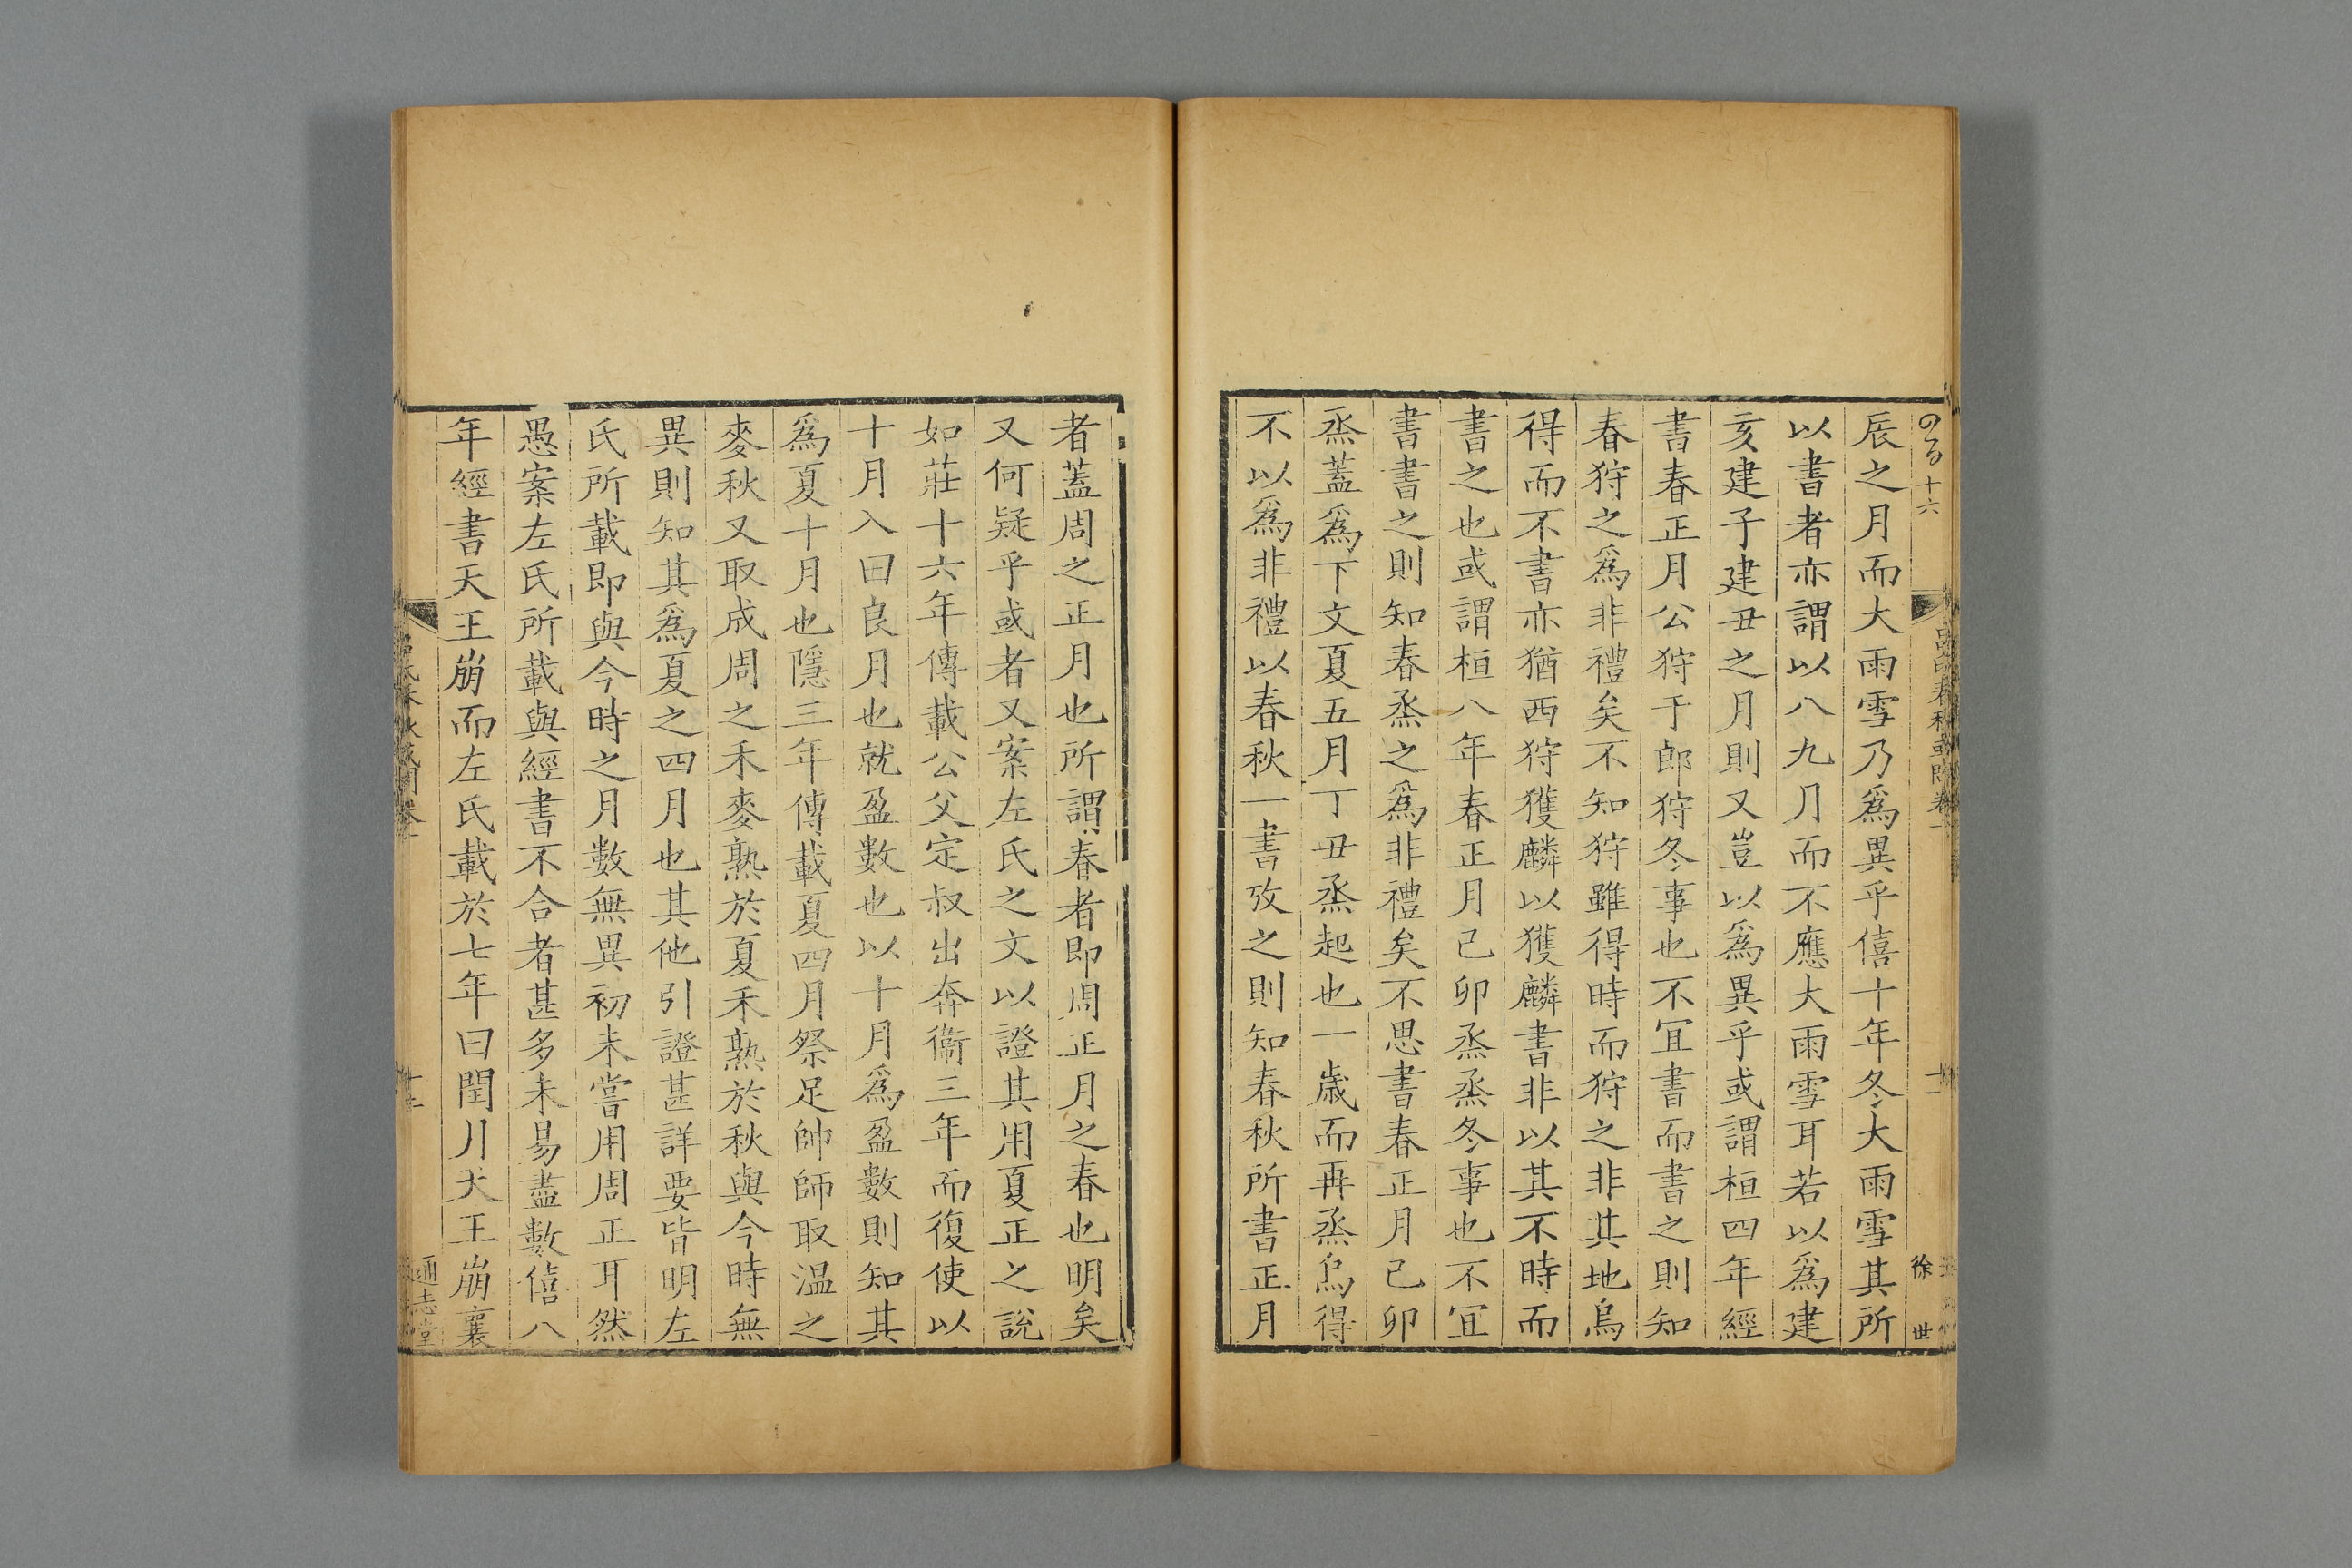 辰之月而大雨雪乃爲異乎僖十年冬大雨雪其所
以書者亦謂以八九月而不應大雨雪耳若以爲建
亥建子建丑之月則又豈以爲異乎或謂桓四年經
書春正月公狩于郎狩冬事也不冝書而書之則知
春狩之爲非禮矣不知狩雖得時而狩之非其地烏
得而不書亦猶西狩獲麟以獲麟書非以其不時而
書之也或謂桓八年春正月己卯烝烝冬事也不冝
書書之則知春烝之爲非禮矣不思書春正月己卯
烝蓋爲下文夏五月丁丑烝起也一歲而再烝烏得
不以爲非禮以春秋一書攷之則知春秋所書正月
者蓋周之正月也所謂春者即周正月之春也明矣
又何疑乎或者又案左氏之文以證其用夏正之說
如莊十六年傳載公父定叔出奔衞三年而復使以
十月入曰良月也就盈數也以十月爲盈數則知其
爲夏十月也隱三年傳載夏四月祭足帥師取温之
麥秋又取成周之禾麥熟於夏禾熟於秋與今時無
異則知其爲夏之四月也其他引證甚詳要皆明左
氏所載即與今時之月數無異初未嘗用周正耳然
愚案左氏所載與經書不合者甚多未易盡數僖八
年經書天王崩而左氏載於七年曰閏月天王崩襄
十六
徐世
通志堂